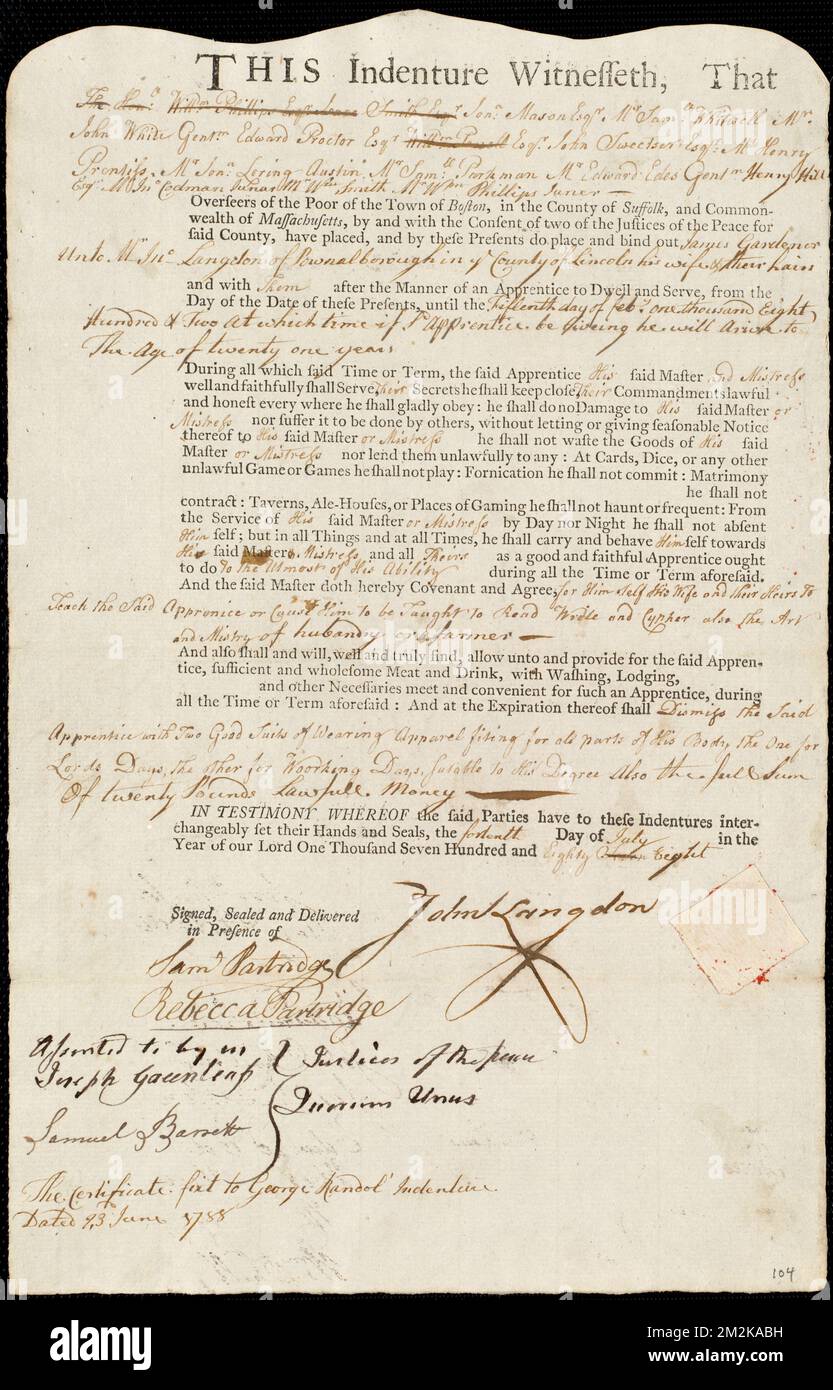 THIS Indenture Witneſſeth, That
The Honᵒ Willᵐ Phillips Esqʳ Isaac Smith Esqʳ Jonⁿ Mason Esqʳ Mʳ Samˡ Whitwell Mʳ
John White Gentᵐ Edward Proctor Esqʳ Willᵐ Powell Esqʳ John Sweetser Esqʳ Mʳ Henry
Prentiss, Mʳ Jonⁿ Loring Austin Mʳ Samˡˡ Parkman Mʳ Edward Edes Gentᵐ Henry Hill
Esqʳ Mʳ Jnᵒ Codman Junar Mʳ Wᵐ Smith Mʳ Wᵐ Phillips Juner —
Overſeers of the Poor of the Town of Boſton, in the County of Suffolk, and Common-
wealth of Maſſachuſetts, by and with the Conſent of two of the Juſtices of the Peace for
ſaid County, have placed, and by theſe Preſents do place and bind out James Gardener
Unto Mʳ Jnᵒ Langdon of Pownalborough in yᵉ County of Lincoln his wife & their hairs
and with Them after the Manner of an Apprentice to Dwell and Serve, from the
Day of the Date of theſe Preſents, until the fifteenth day of Febʸ one thousand Eight
Hundred & Two At which time if sᵈ Apprentice be liveing he will Arive to
The Age of twenty one years
During all which ſaid Time or Term, the ſaid Apprentice His ſaid Maſter and Mistress
well and faithfully ſhall Serve, Their Secrets he ſhall keep cloſe Their Commandments lawful
and honeſt every where he ſhall gladly obey: he ſhall do no Damage to His ſaid Maſter or
Mistress nor ſuffer it to be done by others, without letting or giving ſeaſonable Notice
thereof to His ſaid Maſter or Mistress he ſhall not waſte the Goods of His ſaid
Maſter or Mistress nor lend them unlawfully to any: At Cards, Dice, or any other
unlawful Game or Games he ſhall not play: Fornication he ſhall not commit: Matrimony
he ſhall not
contract: Taverns, Ale-Houſes, or Places of Gaming he ſhall not haunt or frequent: From
the Service of His ſaid Maſter or Mistress by Day nor Night he ſhall not abſent
Him ſelf; but in all Things and at all Times, he ſhall carry and behave Him ſelf towards
His ſaid Maſter & Mistress and all Theirs as a good and faithful Apprentice ought
to do to the Utmost of His Ability during all the Time or Term aforeſaid.
And the ſaid Maſter doth hereby Covenant and Agree, for Him Self His Wife and their Heirs To
Teach the Said Apprenice or Caust Him to be Taught to Read Write and Cypher also the Art
and Mistry of husbandry or a farmer —
And alſo ſhall and will, well and truly find, allow unto and provide for the ſaid Appren-
tice, ſufficient and wholeſome Meat and Drink, with Waſhing, Lodging,
and other Neceſſaries meet and convenient for ſuch an Apprentice, during
all the Time or Term aforeſaid: And at the Expiration thereof ſhall Dismiss the Said
Apprentice with Two Good Suits of Wearing Apparel fiting for all parts of His Body, the One for
Lords Days, the other for Woorking Days, sutable to His Degree Also the full Sum
Of twenty Pounds Lawfull Money —
IN TESTIMONY WHEREOF the ſaid Parties have to theſe Indentures inter-
changeably ſet their Hands and Seals, the forteenth Day of July in the
Year of our Lord One Thouſand Seven Hundred and Eighty Eight
Signed, Sealed and Delivered
in Preſence of
John Langdon
Samˡ Partridge
Rebecca Partridge
Assented to by us
Joseph Greenleaf
Justices of the peace
Quorum Unus
Samuel Barrett
The Certificate fixt to George Randol' Indenture
Dated 23 June 1788
104
alamy
Image ID: 2M2KABH
www.alamy.com